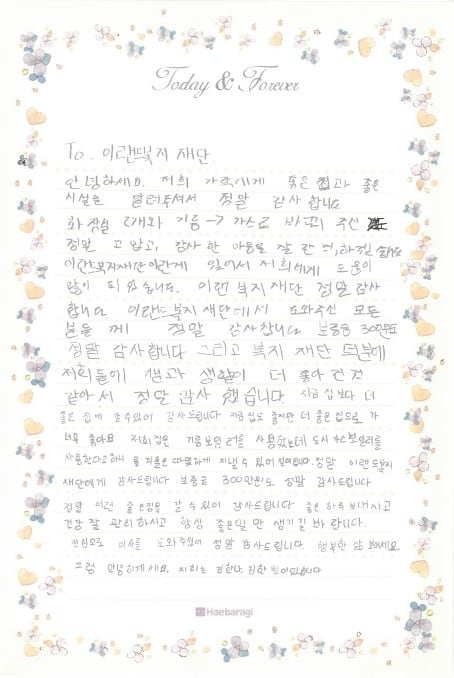 Today & Forever
To. 이랜드복지 재단.
안녕하세요. 저희 가족에게 좋은 집과 좋은
시설을 알려주셔서 정말 감사 합니다
화장실 2개와 기름 → 가스로 바꿔 주신
정말 고맙고, 감사한 마음으로 잘
이랜드복지재단 있어서 저희에게 도움이
많이 되었습니다. 이랜드복지 재단 정말 감사
합니다. 이랜드복지 재단에서 도와주신 모든
분들 께 정말 감사합니다 보증금 300만원도
정말 감사합니다 그리고 복지 재단 덕분에
저희들이 생활이 더 좋아진 것
같아서 정말 감사 했습니다 지금 집보다 더
좋은 집에 갈 수 있어 감사드립니다 지금 집도 좋지만 더 좋은 집으로 가
너무 좋아요 저희 집은 기름보일러를 사용했는데 도시가스 보일러를
사용한다고 하니 올 겨울은 따뜻하게 지낼 수 있어 정말 이랜드복지
재단에게 감사드립니다 보증금 300만원도 정말 감사드립니다
정말 이런 좋은집을 갈 수 있어 감사드립니다 좋은 하루 보내시고
건강 잘 관리하시고 항상 좋은일만 생기길 바랍니다.
진심으로 이사를 도와주셔서 정말 감사드립니다. 행복한 삶 보내세요.
그럼 안녕하게세요. 저희는
Haebaragi